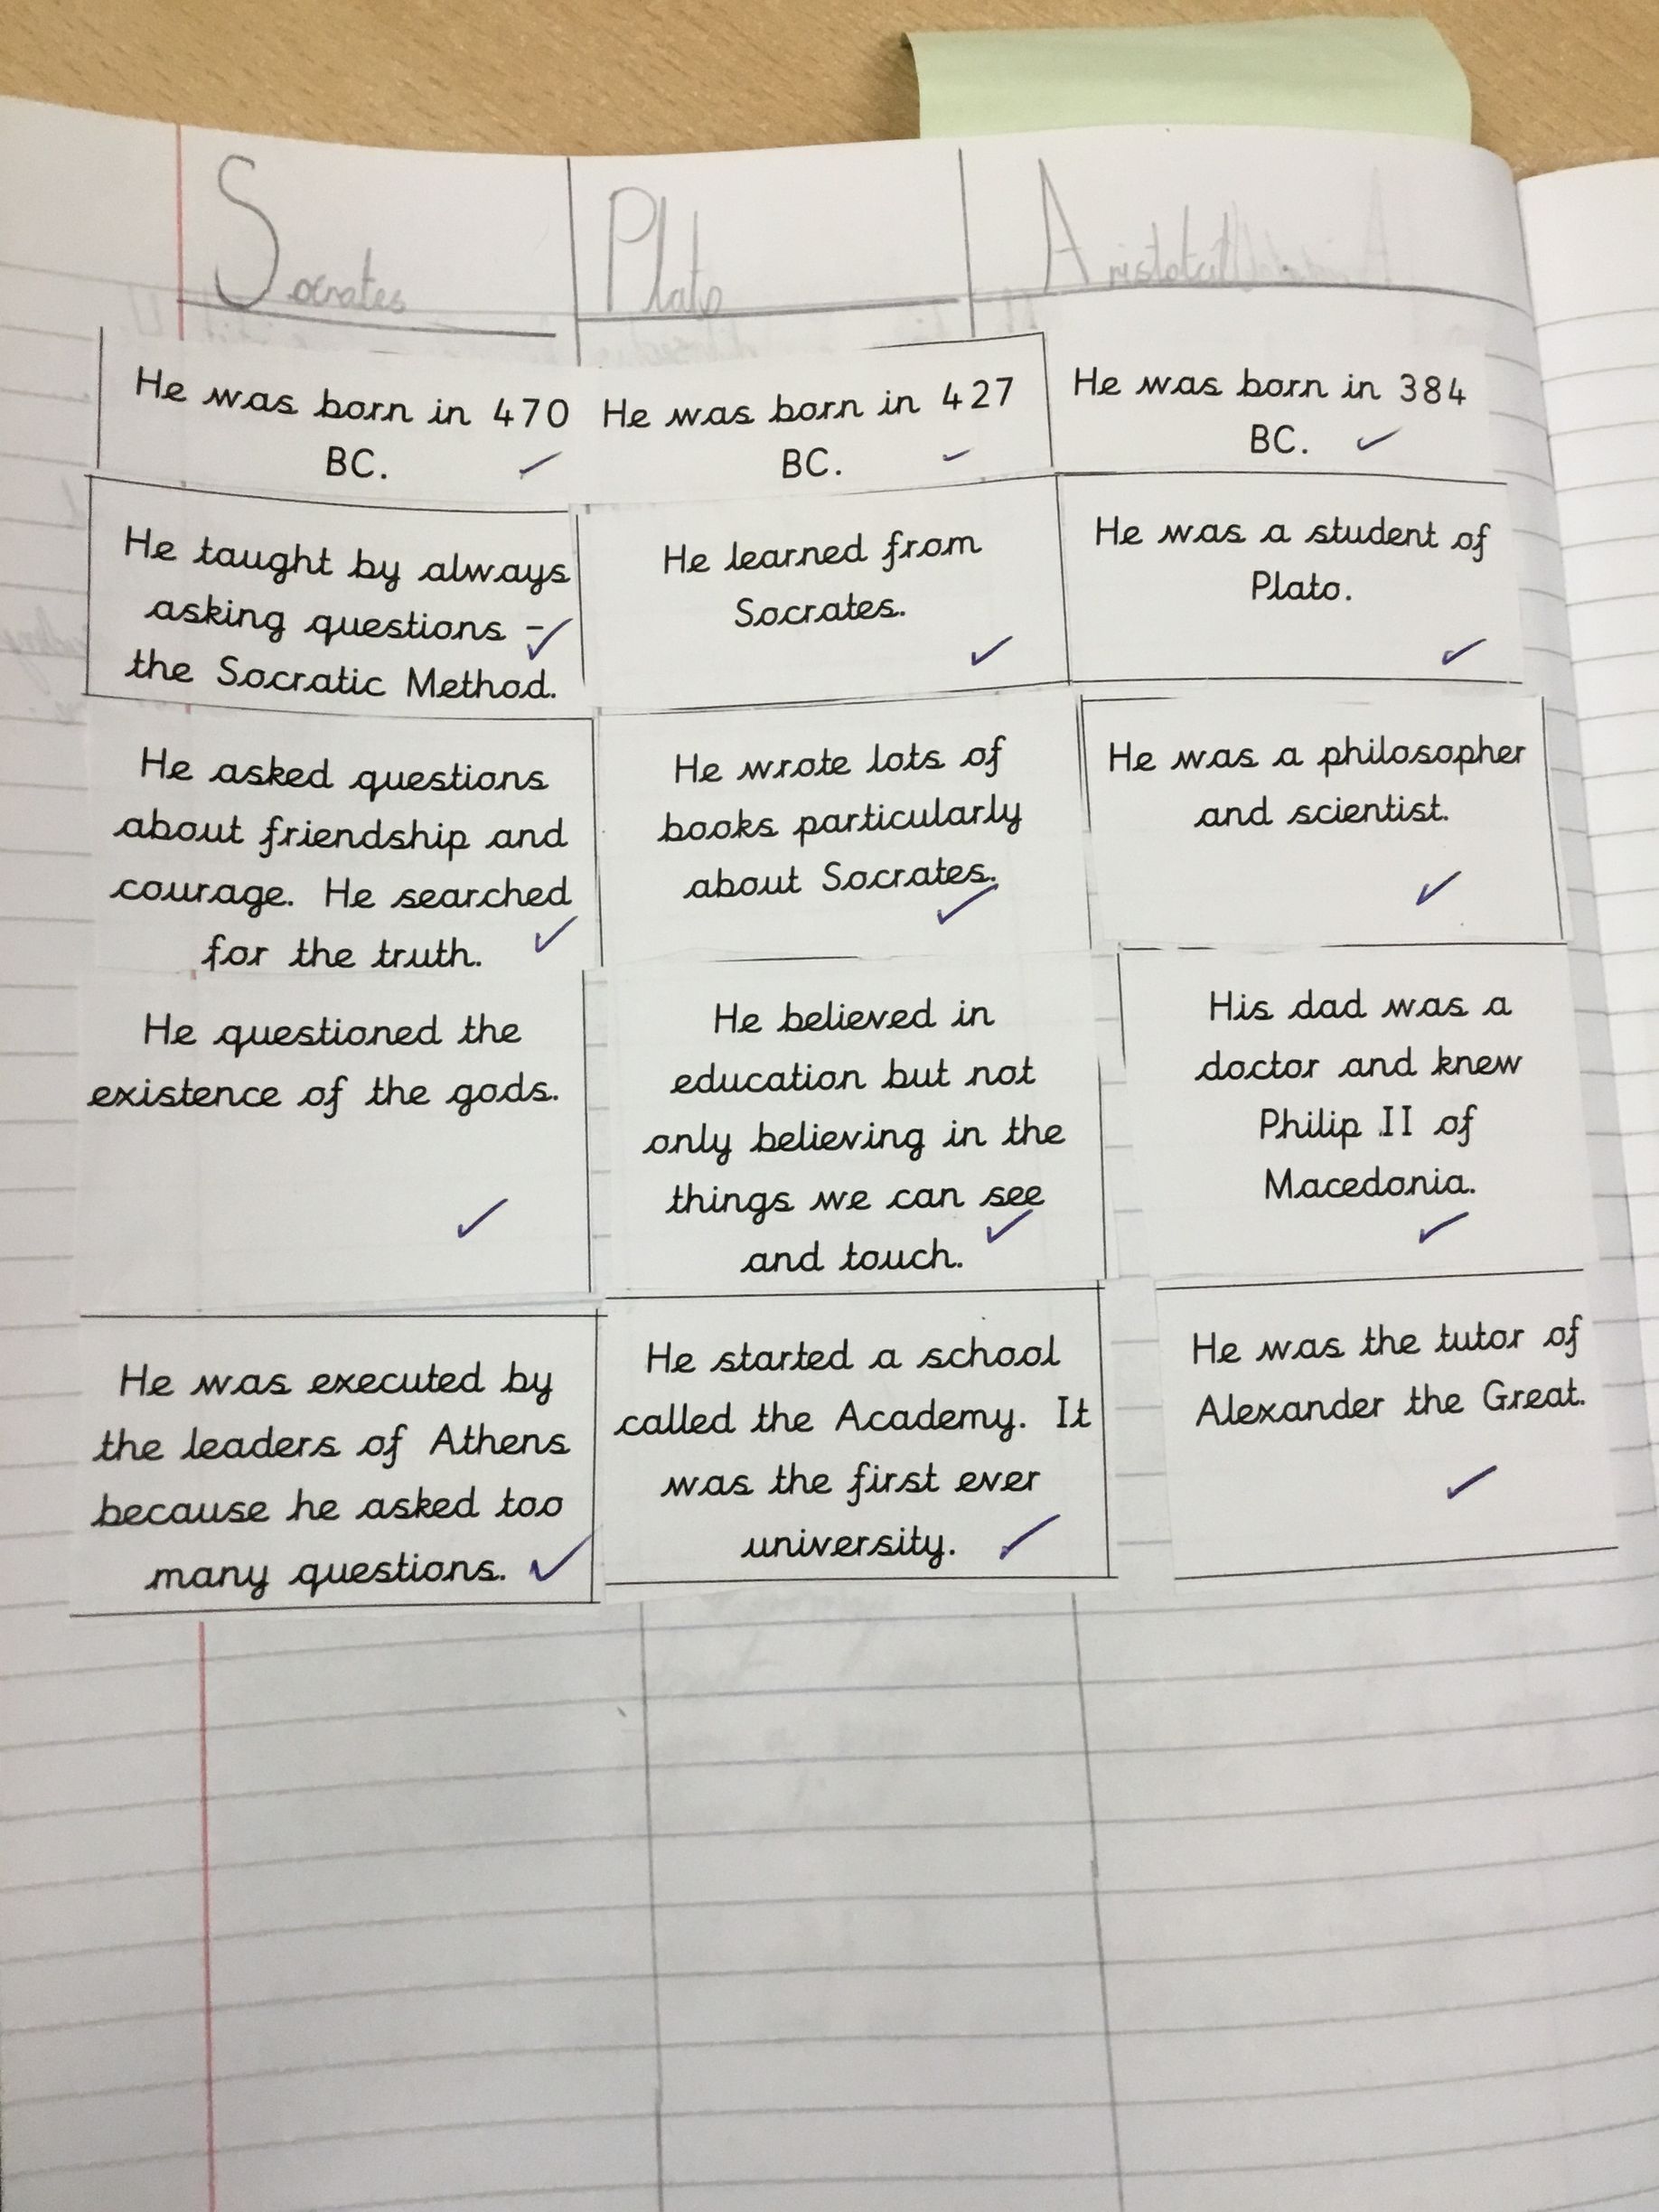 Socrates
Plato
He was born in 470
BC.
He was born in 427
BC.
He was born in 384
BC.
He taught by always
asking questions –
the Socratic Method.
He learned from
Socrates.
He was a student of
Plato.
He asked questions
about friendship and
courage. He searched
for the truth.
He wrote lots of
books particularly
about Socrates.
He was a philosopher
and scientist.
He questioned the
existence of the gods.
He believed in
education but not
only believing in the
things we can see
and touch.
His dad was a
doctor and knew
Philip II of
Macedonia.
He was executed by
the leaders of Athens
because he asked too
many questions.
He started a school
called the Academy. It
was the first ever
university.
He was the tutor of
Alexander the Great.